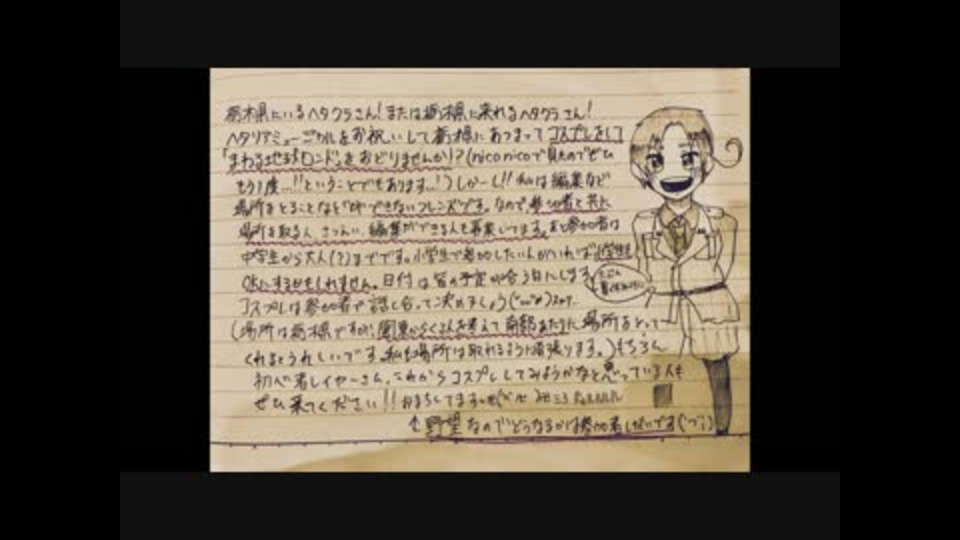 栃木県にいるヘタクラさん!または栃木県に来れるヘタクラさん!
ヘタリアミュージカルをお祝いして栃木県にあつまってコスプレをして
「まわる地球ロンド」をおどりませんか!?(niconicoで見たのでぜひ
もう1度…!!ということでもあります…!)しかーし!!私は編集など
場所をとることなどができないフレンズです。なので、参加者と共に
場所を取る人、さつえい、編集ができる人も募集してます。あと参加者は
中学生から大人(?)までです。小学生で参加したいんがいれば小学生も
OKにするかもしれません。日付は皆の予定が合う日にします。
コスプレは参加者で話し合って決めましょう
(場所は栃木県ですが、関東からくる人を考えて南部あたりに場所をとって
くれるとうれしいです。私も場所は取れるよう頑張ります。)もちろん
初心者レイヤーさん、これからコスプレしてみようかなと思っている人も
ぜひ来てください!!おまちしてます
↑野望なのでどうなるかは参加者しだいです